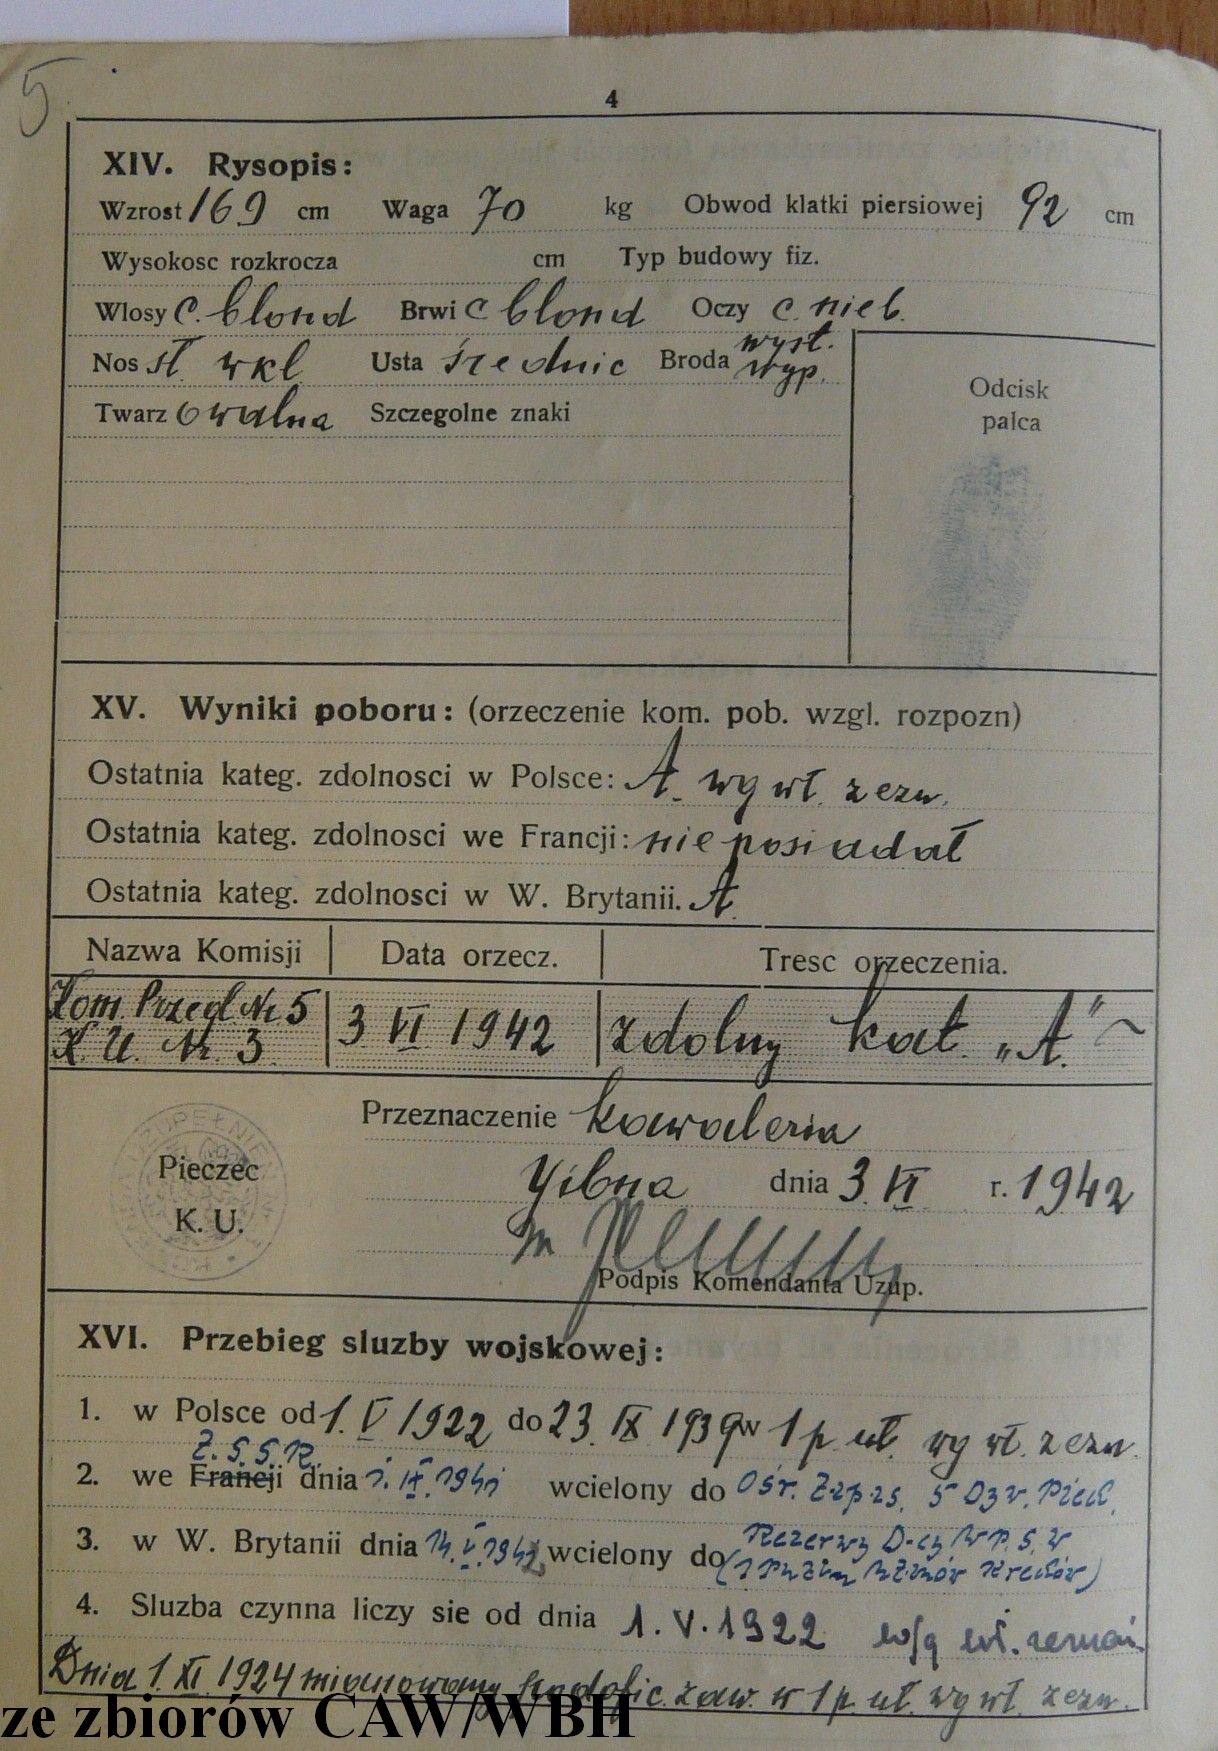 5
4
XIV. Rysopis:
Wzrost 169 cm Waga 70 kg Obwod klatki piersiowej 92 cm
Wysokosc rozkrocza cm Typ budowy fiz.
Wlosy c. blond Brwi c blond Oczy c. nieb.
Nos sł. wkl Usta średnie Broda wyst. wyp.
Twarz owalna Szczegolne znaki
Odcisk
palca
XV. Wyniki poboru: (orzeczenie kom. pob. wzgl. rozpozn)
Ostatnia kateg. zdolnosci w Polsce: A. wg wł. zezn.
Ostatnia kateg. zdolnosci we Francji: nie posiadał
Ostatnia kateg. zdolnosci w W. Brytanii. A.
Nazwa Komisji Data orzecz. Tresc orzeczenia.
Kom. Przegl. Nr 5
K. U. Nr. 3 3 VI 1942 zdolny kat. „A."
Przeznaczenie kawaleria
Pieczec
K. U.
Yibna dnia 3. VI r. 1942
Podpis Komendanta Uzup.
XVI. Przebieg sluzby wojskowej:
1. w Polsce od 1. V 1922 do 23. IX 1939 w 1 p. uł. wg wł. zezn.
Z.S.S.R.
2. we Francji dnia 1. IX. 1941 wcielony do Ośr. Zapas. 5 Dyw. Piech.
3. w W. Brytanii dnia 14. V. 1942 wcielony do Rezerwy D-cy W.P.S.W
4. Sluzba czynna liczy sie od dnia 1. V. 1922 w/g wł. zeznań.
Dnia 1. XI. 1924 mianowany podofic. zaw. w 1 p. uł. wg wł. zezn.
ze zbiorów CAW/WBH